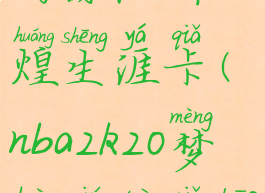 huáng shēng yá qiǎ
煌生涯卡(
mèng
nba2k20梦